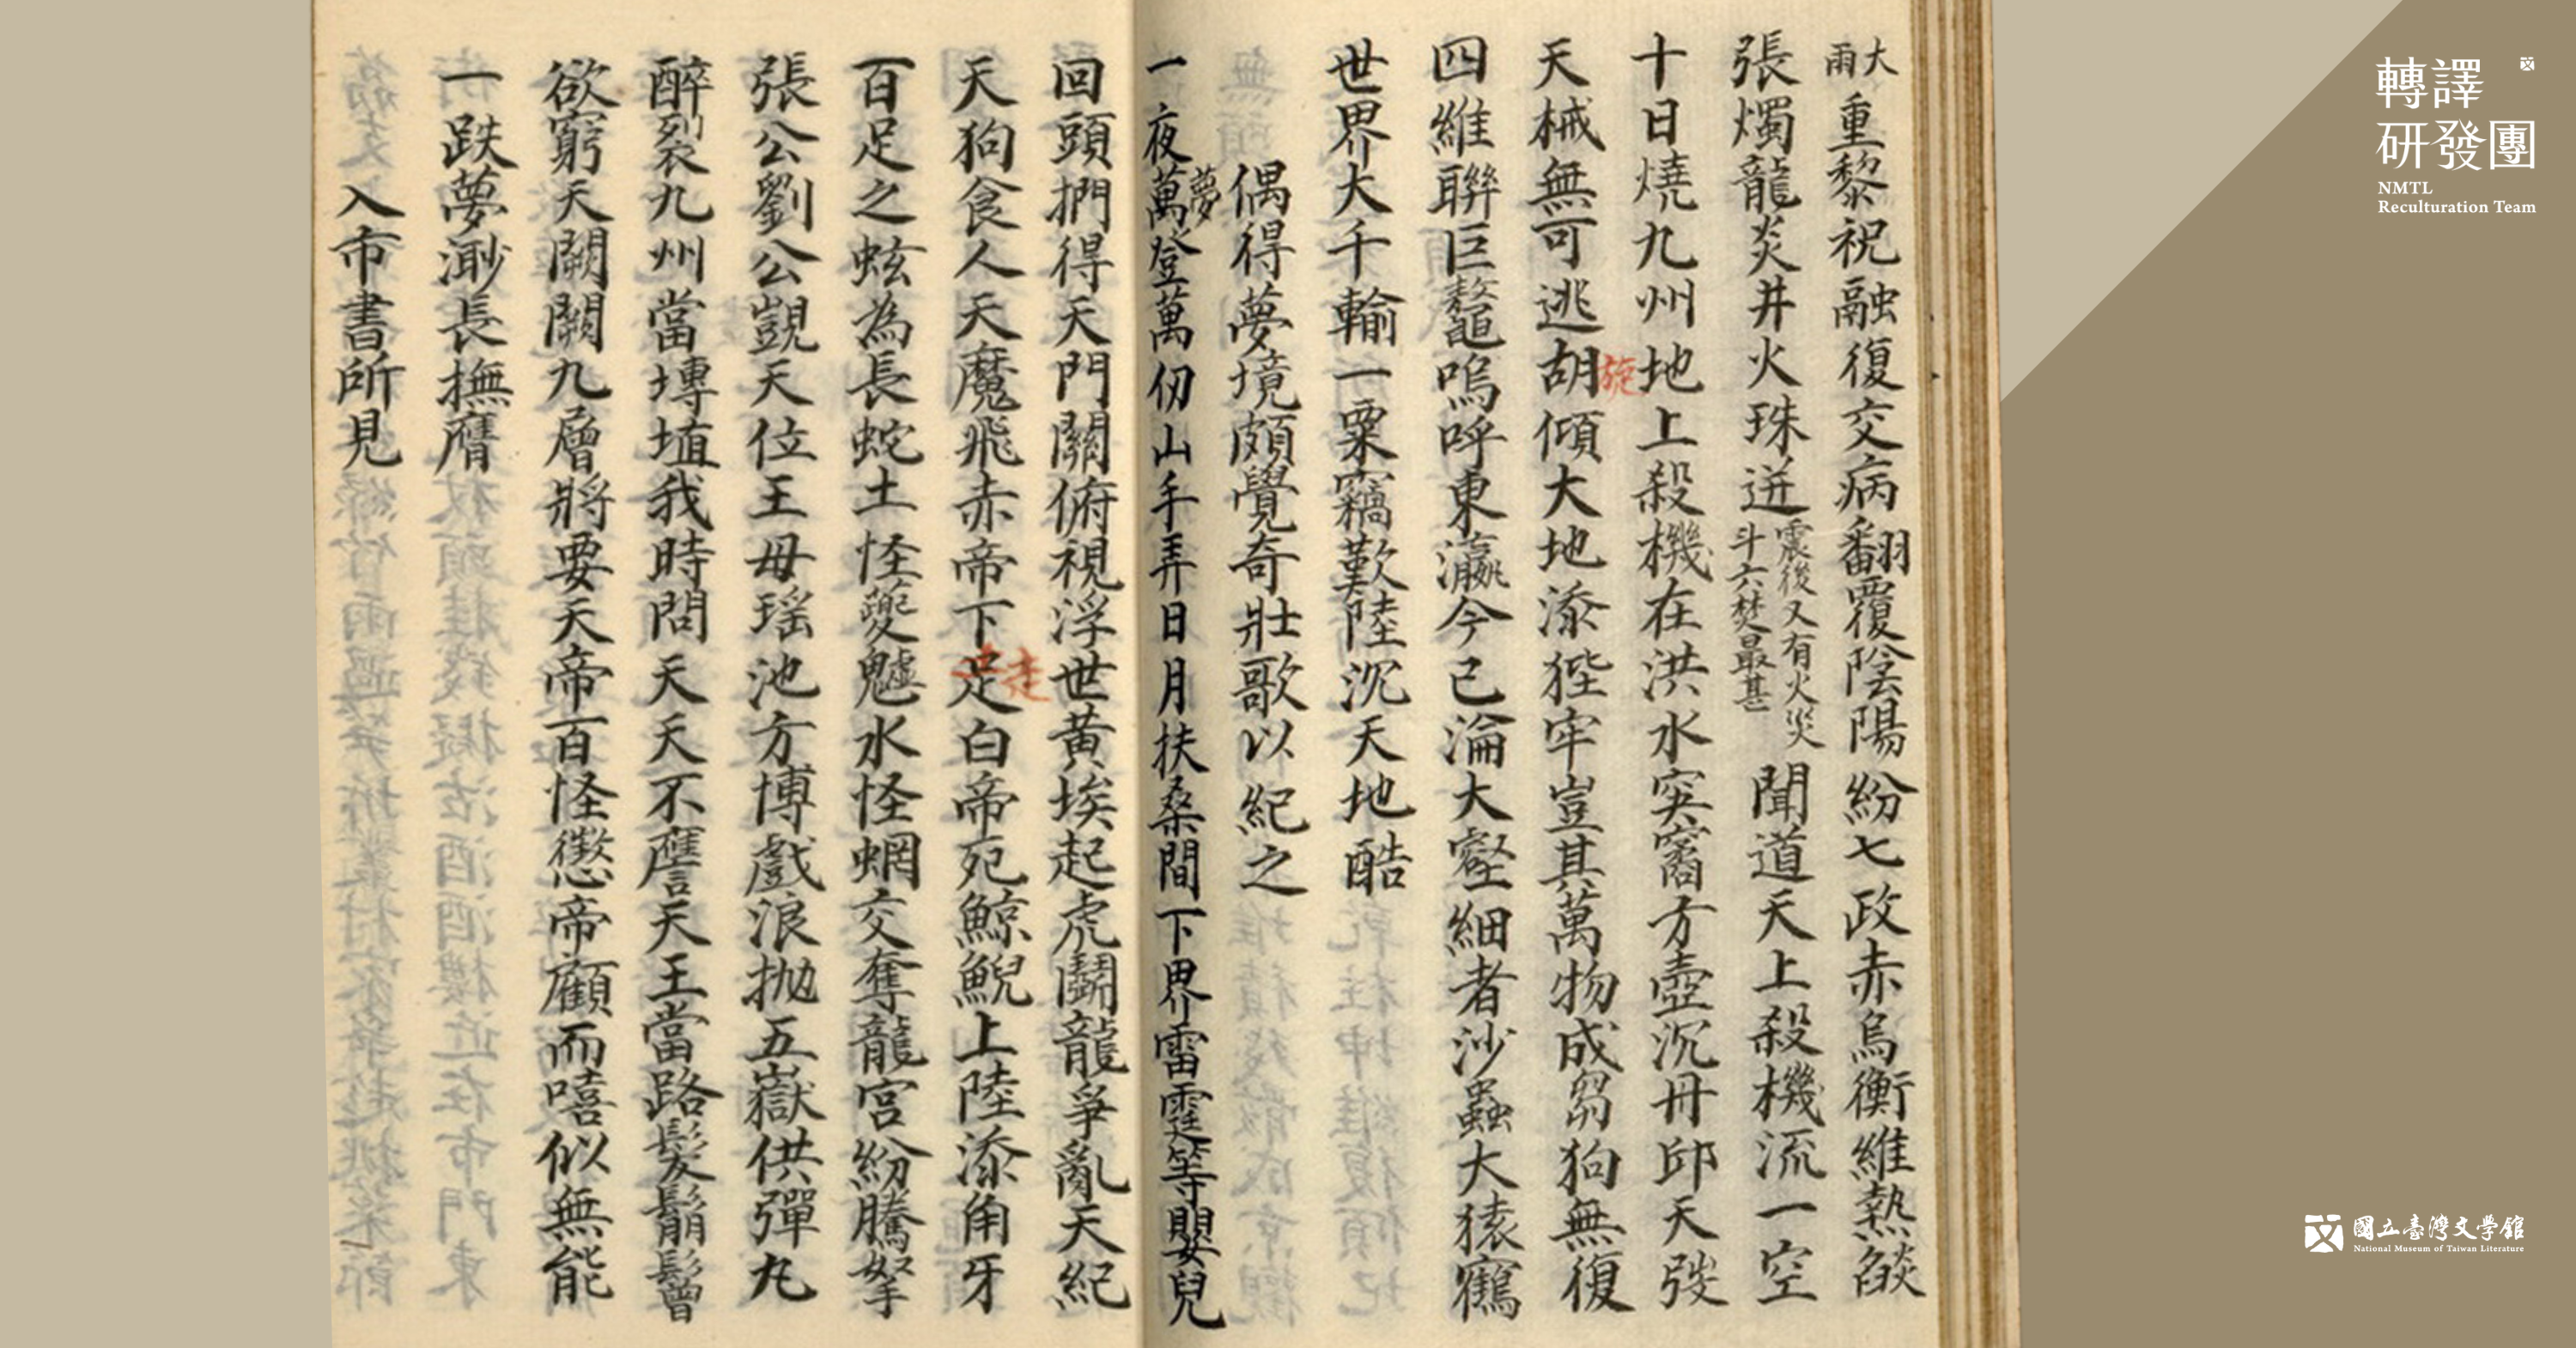 大雨重黎祝融復交病翻覆陰陽紛七政赤烏衡維熱燄
張燭龍炎井火珠迸震後又有火災斗六焚最甚聞道天上殺機流一空
十日燒九州地上殺機在洪水突窩方壺沉丹邱天弢
旋
天械無可逃胡傾大地添狴牢豈其萬物成芻狗無復
四維聯巨鼇嗚呼東瀛今已淪大壑細者沙蟲大猿鶴
世界大千輸一粟竊歎陸沉天地酷
偶得夢境頗覺奇壯歌以紀之
一夜夢萬登萬仞山手弄日月扶桑間下界雷霆等嬰兒
回頭捫得天門關俯視浮世黃埃起虎鬭龍爭亂天紀
走
天狗食人天魔飛赤帝下足白帝死鯨鯢上陸添角牙
百足之蚿為長蛇土怪夔魖水怪蝄交奪龍宮紛騰拏
張公劉公覬天位王母瑤池方博戲浪拋五嶽供彈丸
醉裂九州當塼埴我時問天天不譍天王當路髮鬅鬙
欲窮天闕闕九層將要天帝百怪懲帝顧而嘻似無能
一跌夢渺長撫膺
入市書所見
轉譯
研發團
NMTL
Reculturation Team
國立臺灣文學館
National Museum of Taiwan Literature